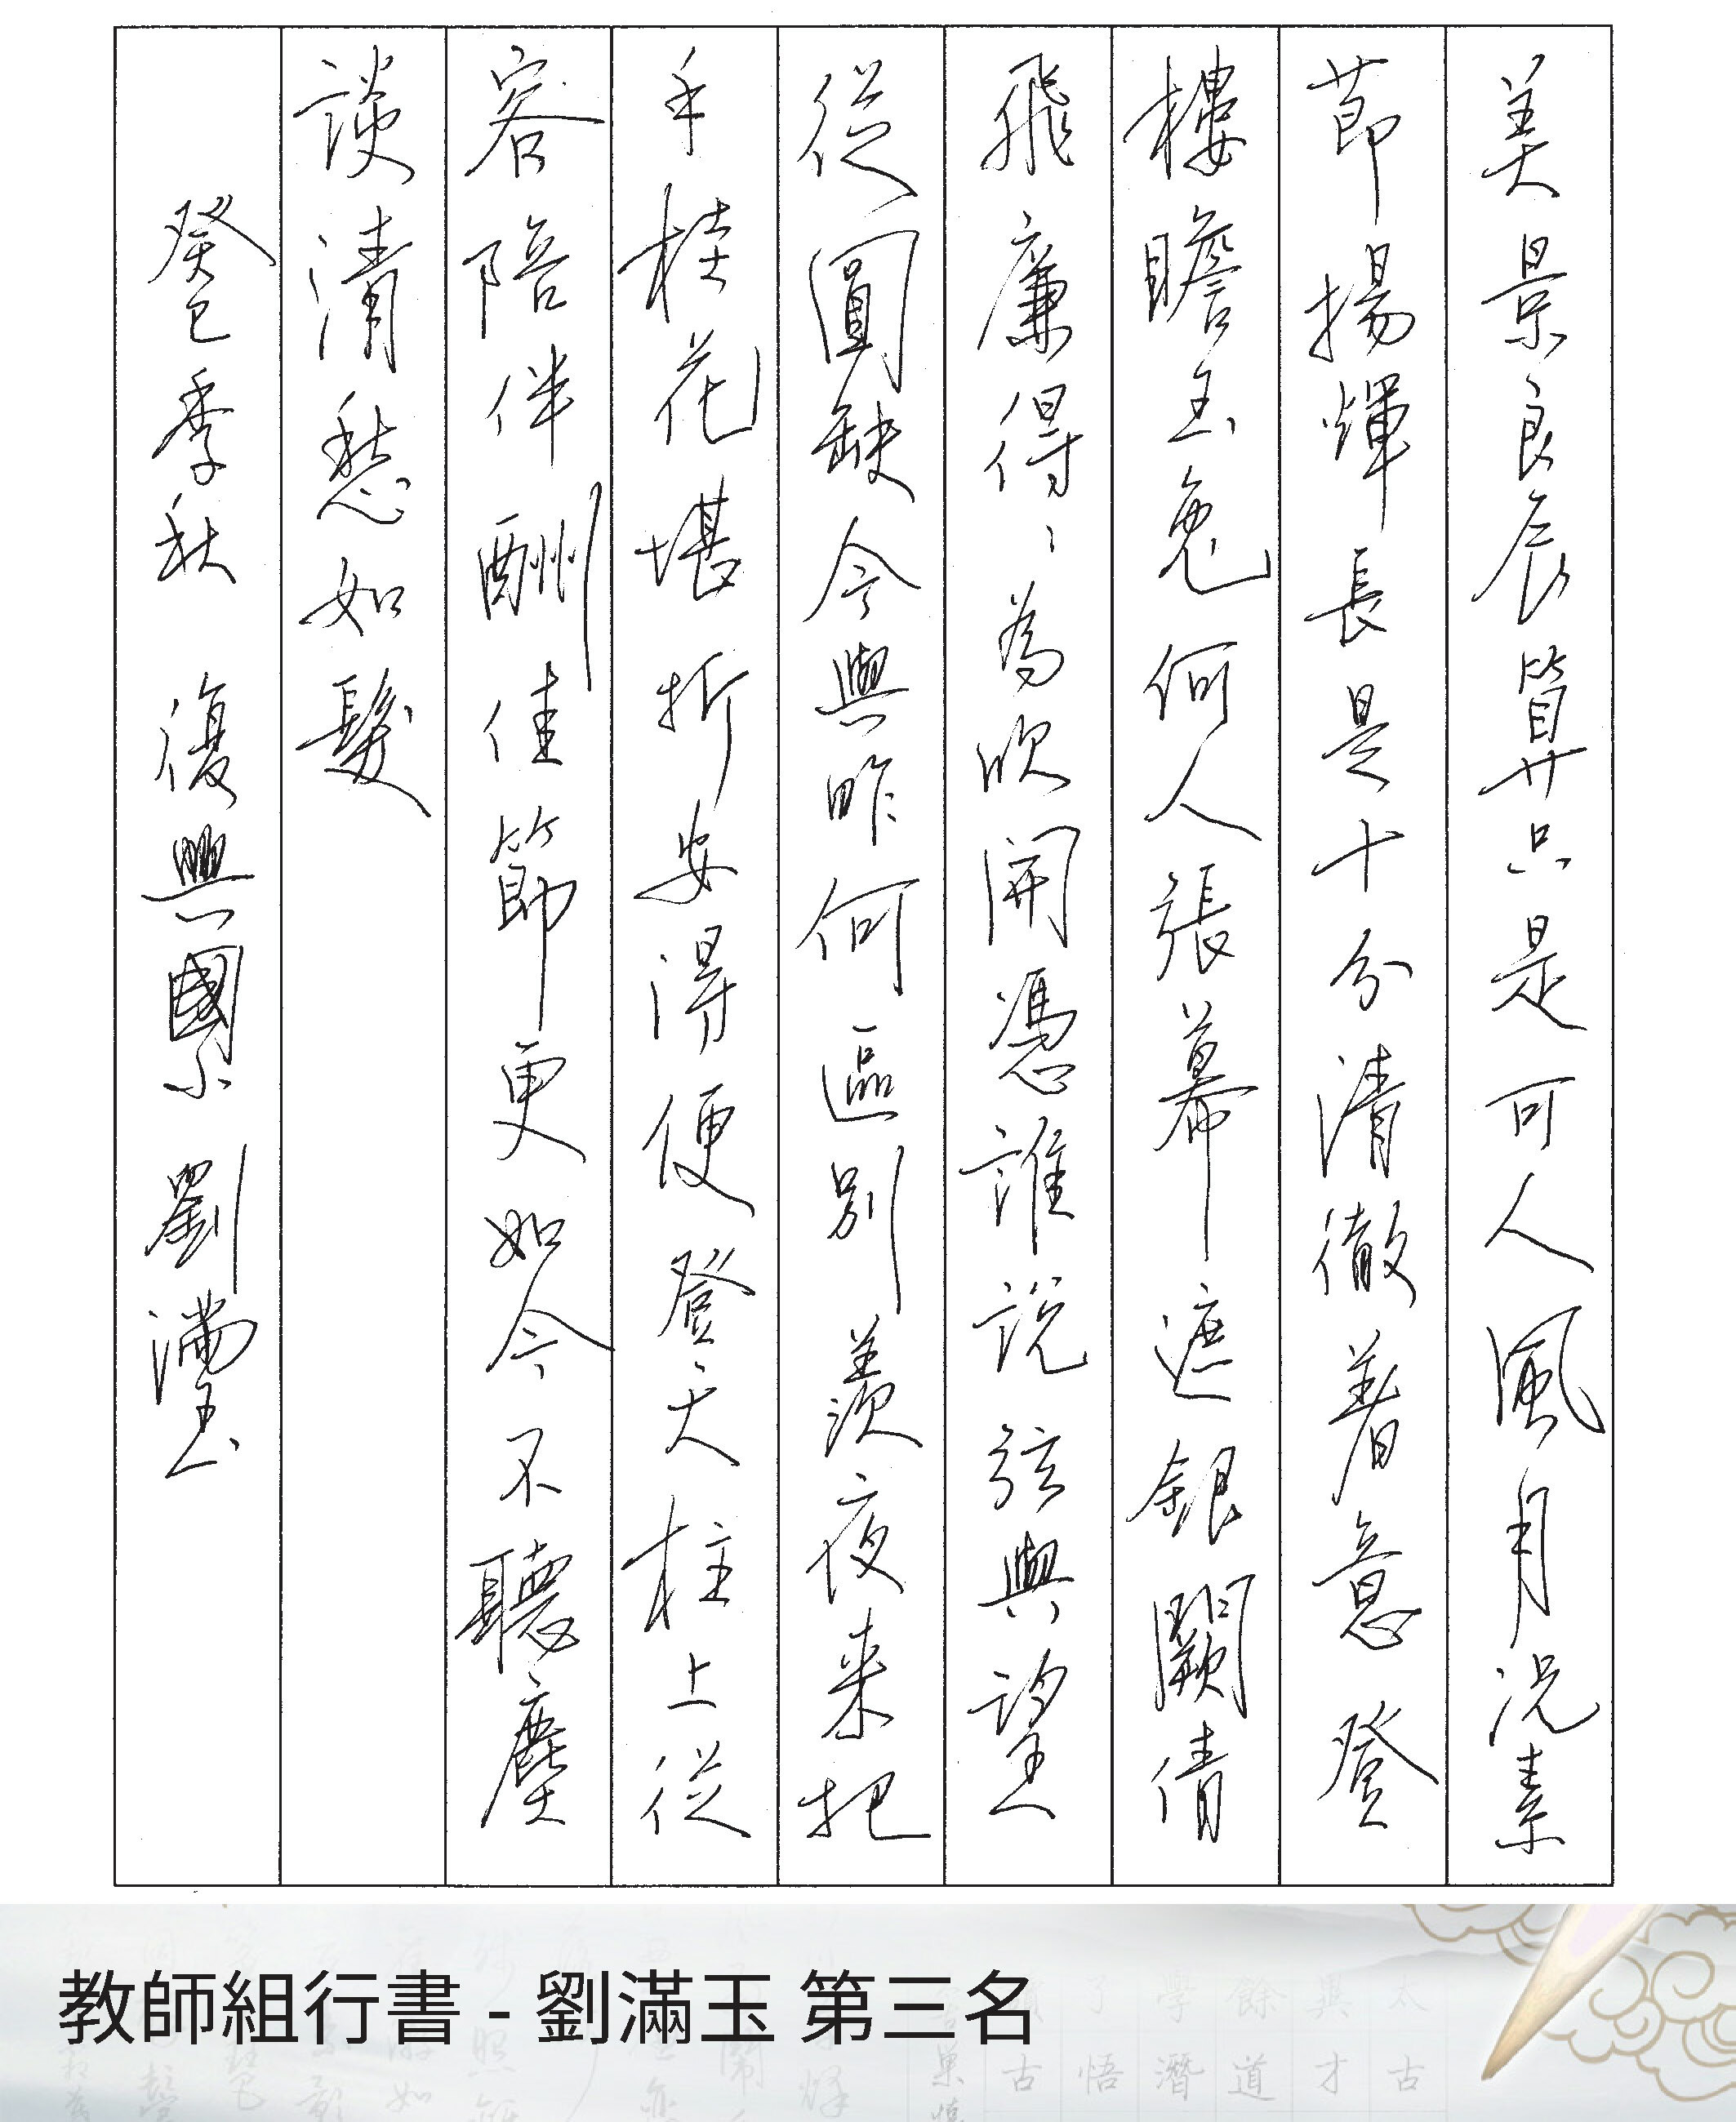 美景良辰算只是可人風月況素
節揚輝長是十分清徹著意登
樓瞻玉兔何人張幕遮銀闕倩
飛廉得得為吹開憑誰說弦與望
從圓缺今與昨何區別羨夜來把
手桂花堪折安得便登天柱上從
容陪伴酬佳節更如今不聽麈
談清愁如髮
癸巳季秋 復興國小 劉滿玉
教師組行書 - 劉滿玉 第三名